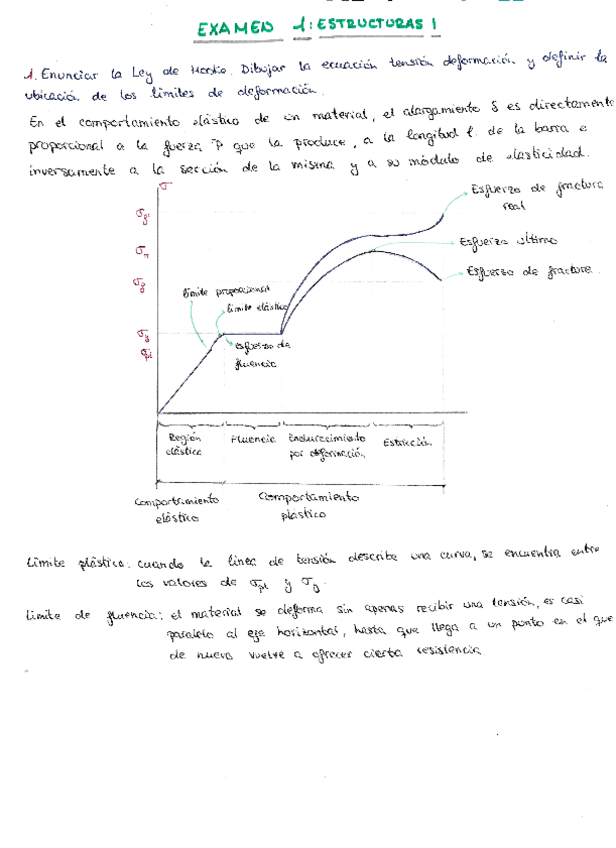 EXAMEN 1: ESTRUCTURAS 1
1. Enunciar la Ley de Hooke. Dibujar la ecuación tensión deformación y definir la
ubicación de los límites de deformación.
En el comportamiento elástico de un material, el alargamiento δ es directamente
proporcional a la fuerza P que la produce, a la longitud l. de la barra e
inversamente a la sección de la misma y a su módulo de elasticidad.
σ
Esfuerzo de fractura
real
Esfuerzo último
Esfuerzo de fractura
límite proporcional
límite elástico
σy
σpl
esfuerzo de
fluencia
Región
elástica
Fluencia
Endurecimiento
por deformación
Estricción
Comportamiento
elástico
Comportamiento
plástico
Límite plástico: cuando la línea de tensión describe una curva, se encuentra entre
los valores de σpl y σy.
Límite de fluencia: el material se deforma sin apenas recibir una tensión, es casi
paralelo al eje horizontal, hasta que llega a un punto en el que
de nuevo vuelve a ofrecer cierta resistencia